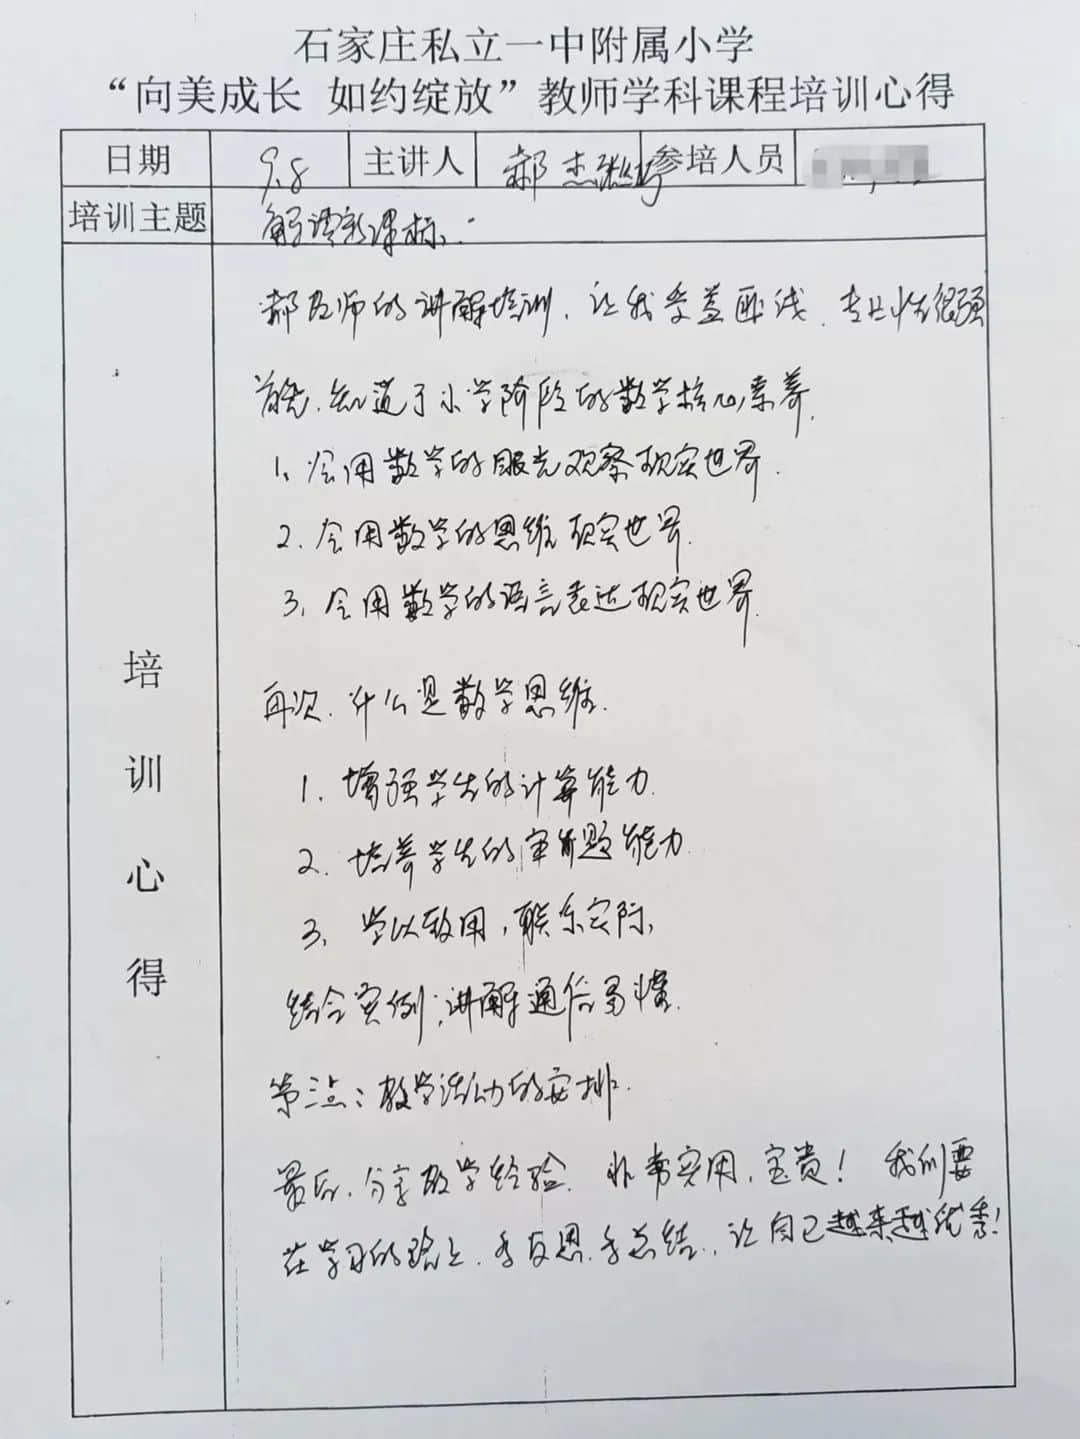 石家庄私立一中附属小学
“向美成长 如约绽放”教师学科课程培训心得
日期 9.8 主讲人 郝杰 参培人员
培训主题 解读新课标:
培训心得
郝老师的讲解培训,让我受益匪浅,专业性很强
首先,知道了小学阶段的数学核心素养.
1、会用数学的眼光观察现实世界.
2、会用数学的思维现实世界.
3、会用数学的语言表达现实世界.
再次,什么是数学思维.
1、增强学生的计算能力.
2、培养学生的审题能力.
3、学以致用,联系实际,
结合实例,讲解通俗易懂.
第三点:教学活动的安排.
最后,分享教学经验,非常实用,宝贵!我们要
在学习的路上,多反思,多总结,让自己越来越优秀!